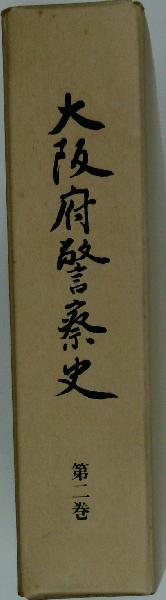 大阪府警察史
第二巻